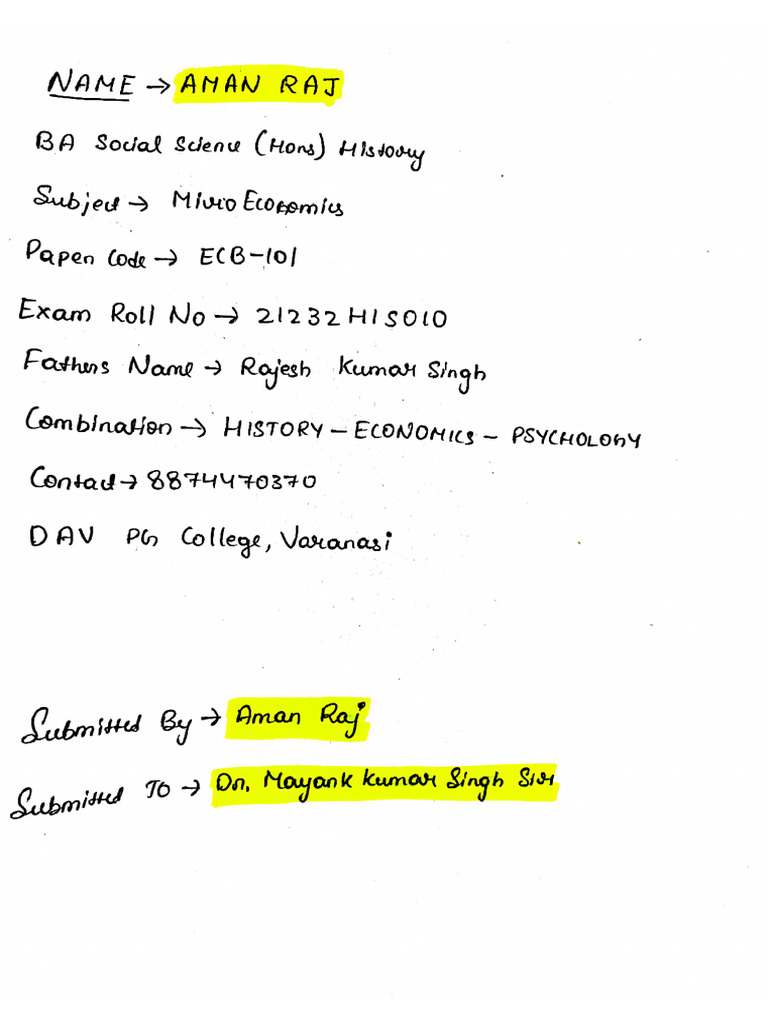 NAME → AMAN RAJ
BA Social Science (Hons) History
Subject → Micro Economics
Paper Code → ECB-101
Exam Roll No → 21232HIS010
Fathers Name → Rajesh Kumar Singh
Combination → HISTORY - ECONOMICS - PSYCHOLOGY
Contact → 8874470370
DAV PG College, Varanasi
Submitted By → Aman Raj
Submitted To → Dr. Mayank Kumar Singh Sir